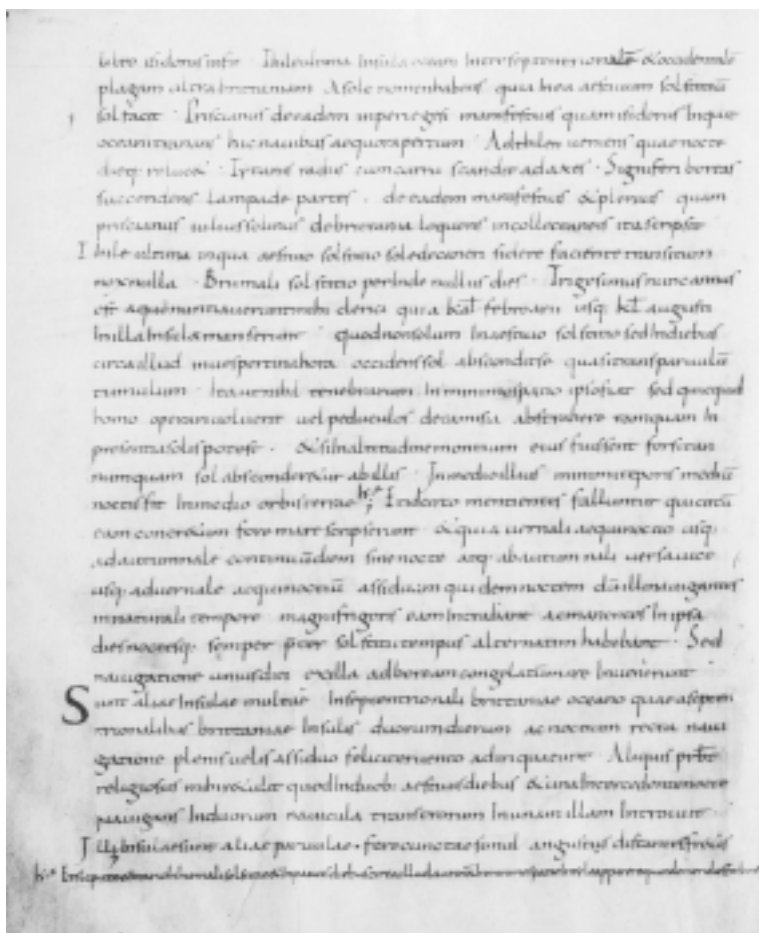 libro isidorus infit · Thile ultima insula oceani inter septentrionalē & occidentalē
plagam ultra brittaniam · A sole nomen habens quia in ea aestiuum solstitiū
sol facit · Priscianus de eadem in periegesi manifestius quam isidorus inquit
oceani tranans hinc nauibus aequor apertum · Ad thilen ueniens quae nocte
dieq; relucet · Tytanis radiis cum curru scandit ad axes · Signiferi boreas
succendens lampade partes · de eadem manifestius & plenius quam
priscianus iulius solinus de brittania loquens in collectaneis ita scripsit
Thile ultima in qua aestiuo solstitio sole de cancri sidere faciente transitum
nox nulla · Brumali solstitio perinde nullus dies · Trigesimus nunc annus
est a quo nuntiauerunt mihi clerici qui a kał februarii usq; kł augusti
in illa insula manserunt quod non solum in aestiuo solstitio sed in diebus
circa illud in uespertina hora occidens sol abscondit se quasi trans paruulū
tumulum · Ita ut nihil tenebrarum in minimo spatio ipso fiat sed quicquid
homo operari uoluerit uel peduculos de camisia abstrahere tamquam in
presentia solis potest · & si in altitudine montium eius fuissent forsitan
numquam sol absconderetur ab illis · In medio illius minimi temporis mediū
noctis fit in medio orbis terrae Idcirco mentientes falluntur qui circū
eam concretum fore mare scripserunt & qui a uernali aequinoctio usq;
ad autumnale continuū diem sine nocte atq; ab autumnali uersa uice
usq; ad uernale aequinoctiū assiduam quidem noctem dū illi nauigantes
in naturali tempore magni frigoris eam intrabant ac manentes in ipsa
dies noctesq; semper p̄ter solstitii tempus alternatim habebant · Sed
nauigatione unius diei ex illa ad boream congelatū mare inuenerunt
Sunt aliae insulae multae in septentrionali brittaniae oceano quae a septen
trionalibus brittaniae insulis duorum dierum ac noctium recta naui
gatione plenis uelis assiduo feliciter uento adiri queunt · Aliquis prb̄t
religiosus mihi retulit quod in duob; aestiuis diebus & una intercedente nocte
nauigans in duorum nauicula transtrorum in unam illam introiuit
Illae insulae sunt aliae paruulae · fere cunctae simul angustis distantes fretis